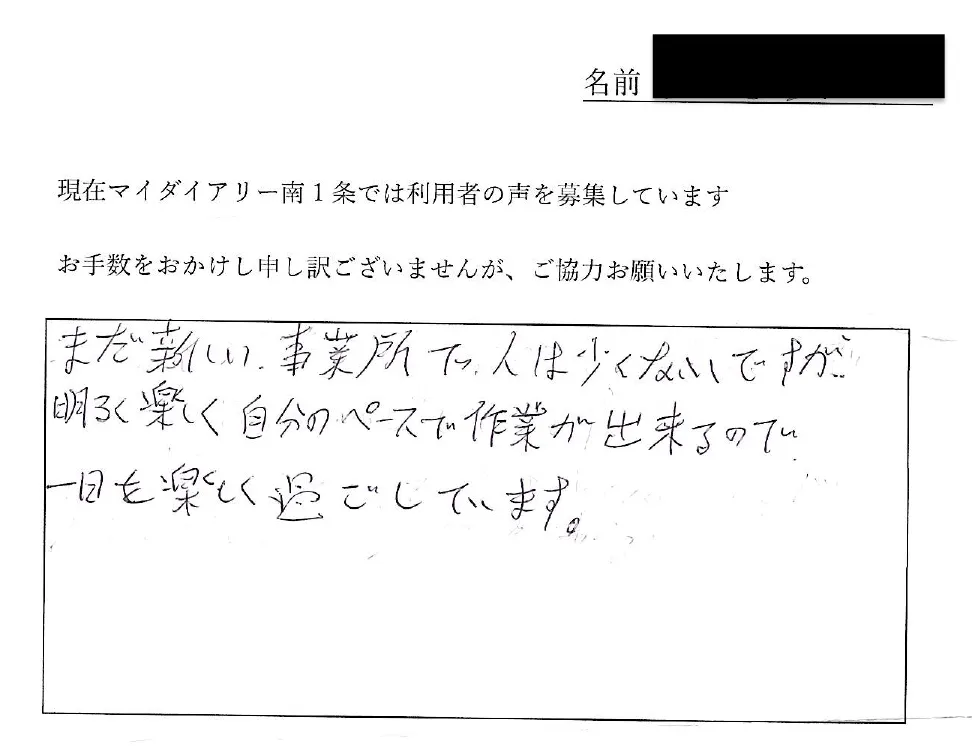 名前
現在マイダイアリー南1条では利用者の声を募集しています
お手数をおかけし申し訳ございませんが、ご協力お願いいたします。
まだ新しい、事業所で、人は少くないですが、
明るく楽しく自分のペースで作業が出来るので、
一日を楽しく過ごしています。